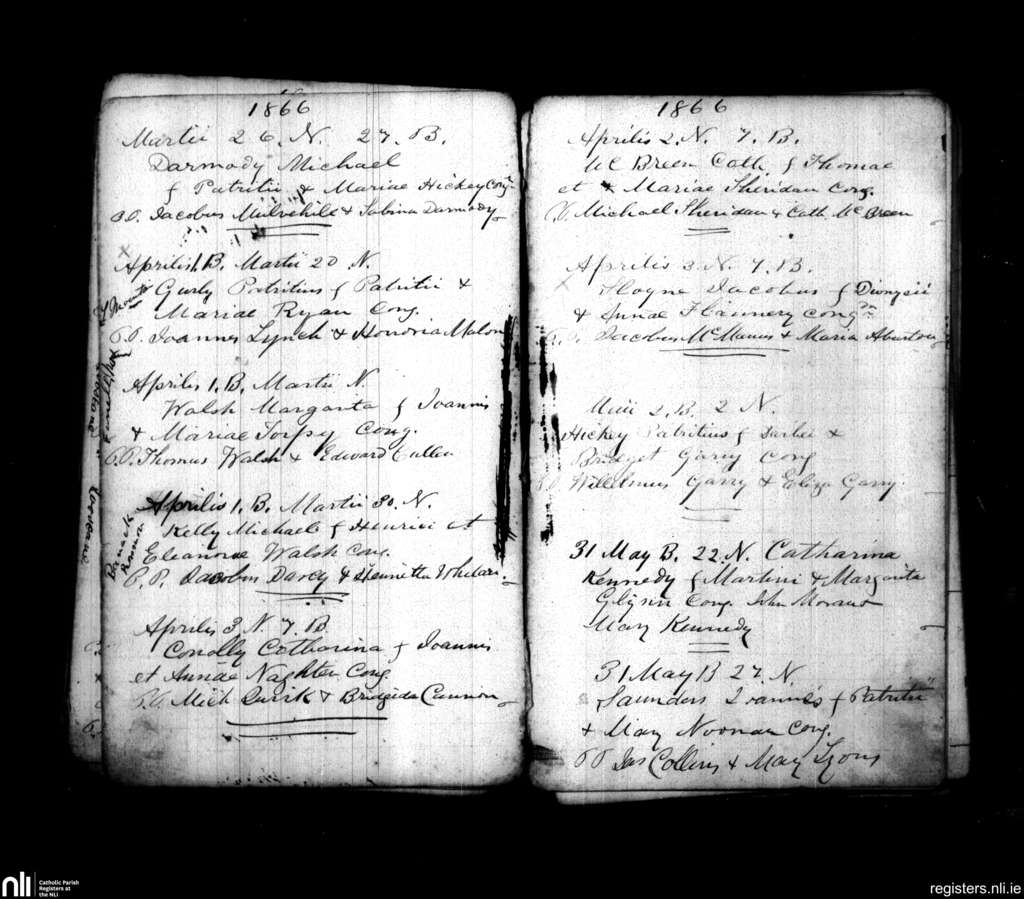 1866
Martii 26. N. 27. B.
Darmody Michael
f Patritii & Mariae Hickey Cong
P.P. Jacobus Mulvehile & Sabina Darmody
Aprilis 1. B. Martii 20 N.
Patritius f Patritii &
Mariae Ryan Cong.
P.P. Joannes Lynch & Honoria Malon
Aprilis 1. B. Martii N.
Walsh Margarita f Joannis
& Mariae Torpy Cong.
P.P. Thomas Walsh & Edward Cullen
Aprilis 1. B. Martii 30. N.
Kelly Michael f Henrici et
Eleanorae Walsh Cong.
P. P. Jacobus Darcy & Henrietta Whelan
Aprilis 3. N. 7. B.
Conolly Catharina f Joannis
et Annae Naghten Cong.
P.P. Mich Quirk & Bridgida Cannon
1866
Aprilis 2. N. 7. B.
Mc Breen Cath. f Thomae
et Mariae Sheridan Cong.
P.P. Michael Sheridan & Cath. Mc Breen
Aprilis 3. N. 7. B.
Jacobus f Dionysii
& Annae Flannery Cong
Jacobus McManus & Maria
2. B. 2 N.
Hickey Patritius f &
Bridget Garry Cong
Willelmus Garry & Eliza Garry.
31 May B. 22. N. Catharina
Kennedy f Martini & Margarita
Glynn Cong. John Moran
Mary Kennedy
31 May B 27. N.
Saunders Joannes f Patritii
& Mary Noonan Cong.
P P Jas Collins & Mary Lyons
nli
Catholic Parish
Registers at
the NLI
registers.nli.ie